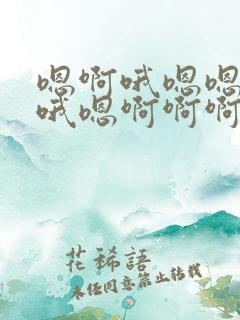 嗯啊哦嗯嗯
哦嗯啊啊啊
花稀語
未经同意禁止转载